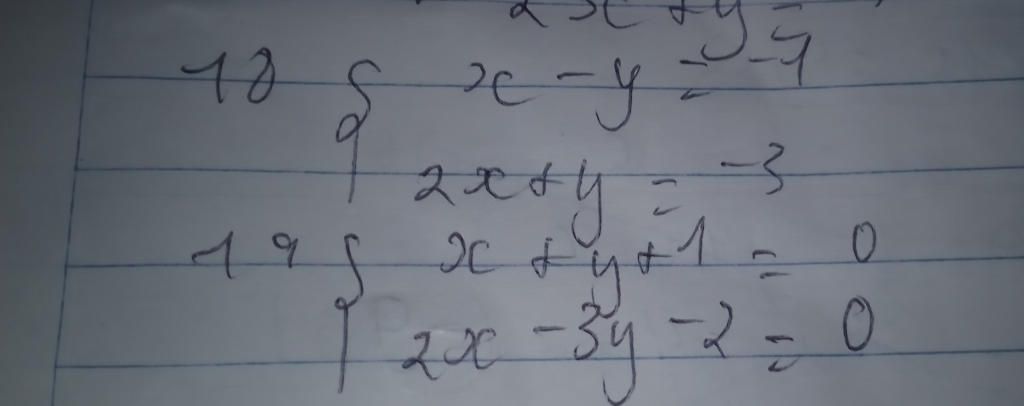 2x + y =
18 { x - y = -1
2x + y = -3
19 { x + y + 1 = 0
2x - 3y - 2 = 0